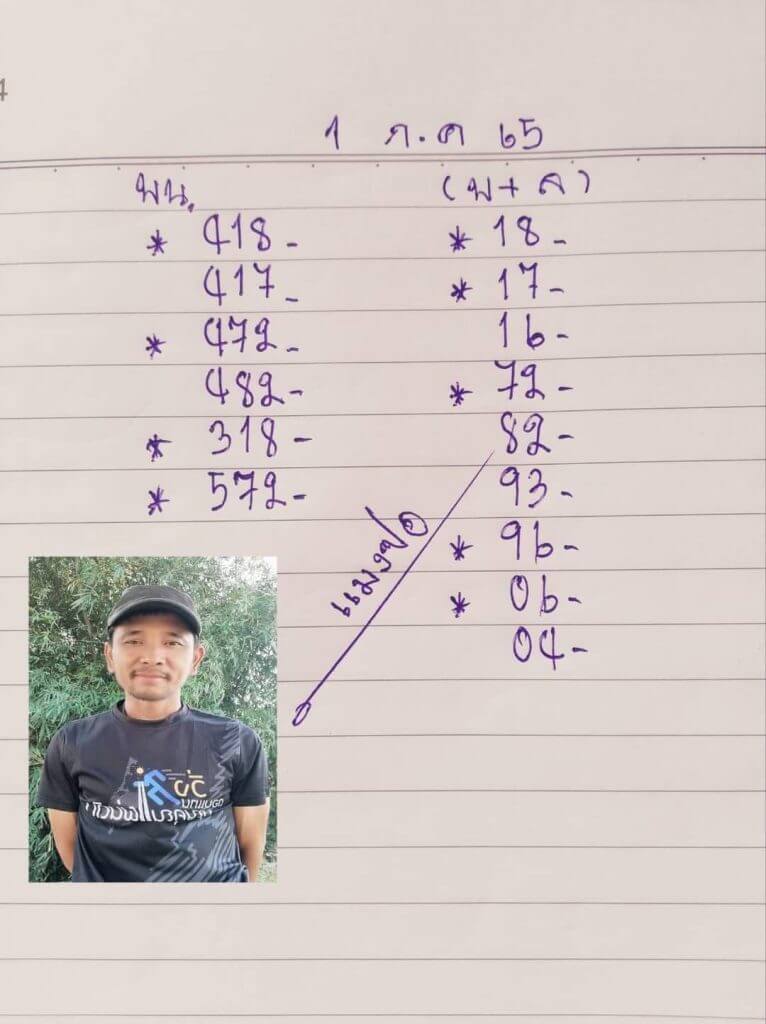 1 ก.ค 65
บน.
* 418-
417-
* 472-
482-
* 318-
* 572-
(บ+ล)
* 18-
* 17-
16-
* 72-
82-
93-
* 96-
* 06-
04-